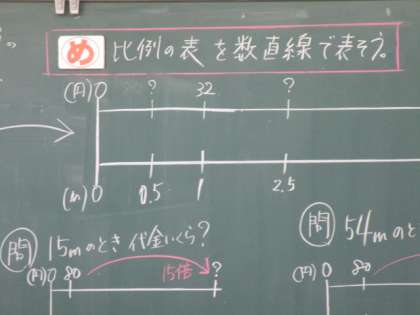 め 比例の表を数直線で表そう。
(円) 0 ? 32 ?
(m) 0 0.5 1 2.5
問 15mのとき代金いくら?
(円) 0 80 15倍 ?
問 54mのと
(円) 0 80